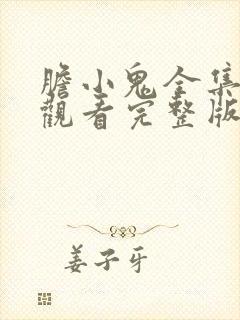 膽小鬼全集
觀看完整版
姜子牙